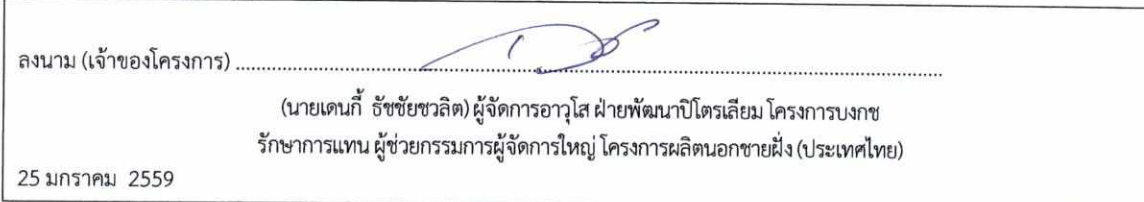 ลงนาม (เจ้าของโครงการ) ................................................................................
(นายเดนกี้ ธัชชัยชวลิต) ผู้จัดการอาวุโส ฝ่ายพัฒนาปิโตรเลียม โครงการบงกช
รักษาการแทน ผู้ช่วยกรรมการผู้จัดการใหญ่ โครงการผลิตนอกชายฝั่ง (ประเทศไทย)
25 มกราคม 2559